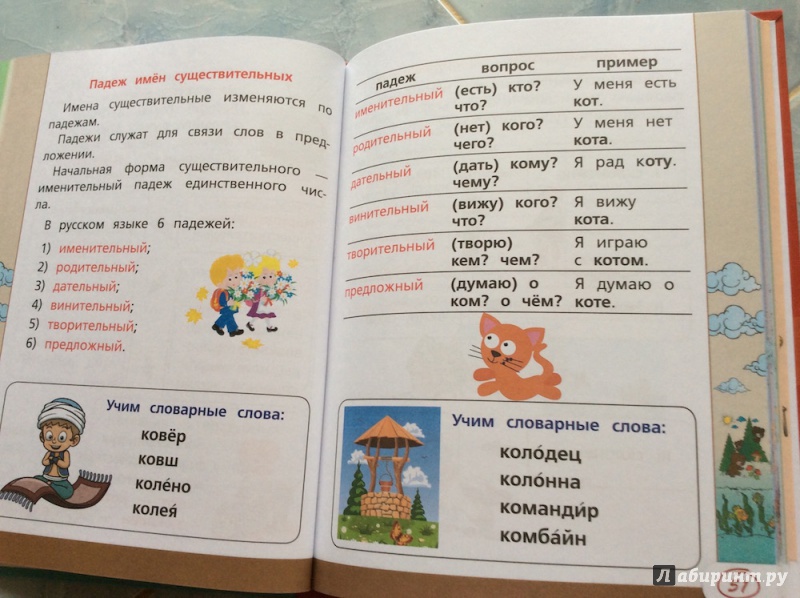 Падеж имён существительных
Имена существительные изменяются по
падежам.
Падежи служат для связи слов в пред-
ложении.
Начальная форма существительного —
именительный падеж единственного чис-
ла.
В русском языке 6 падежей:
1) именительный;
2) родительный;
3) дательный;
4) винительный;
5) творительный;
6) предложный.
Учим словарные слова:
ковёр
ковш
коле́но
колея́
падеж вопрос пример
именительный (есть) кто? У меня есть
что? кот.
родительный (нет) кого? У меня нет
чего? кота.
дательный (дать) кому? Я рад коту.
чему?
винительный (вижу) кого? Я вижу
что? кота.
творительный (творю) Я играю
кем? чем? с котом.
предложный (думаю) о Я думаю о
ком? о чём? коте.
Учим словарные слова:
коло́дец
коло́нна
команди́р
комба́йн
31
Лабиринт.ру